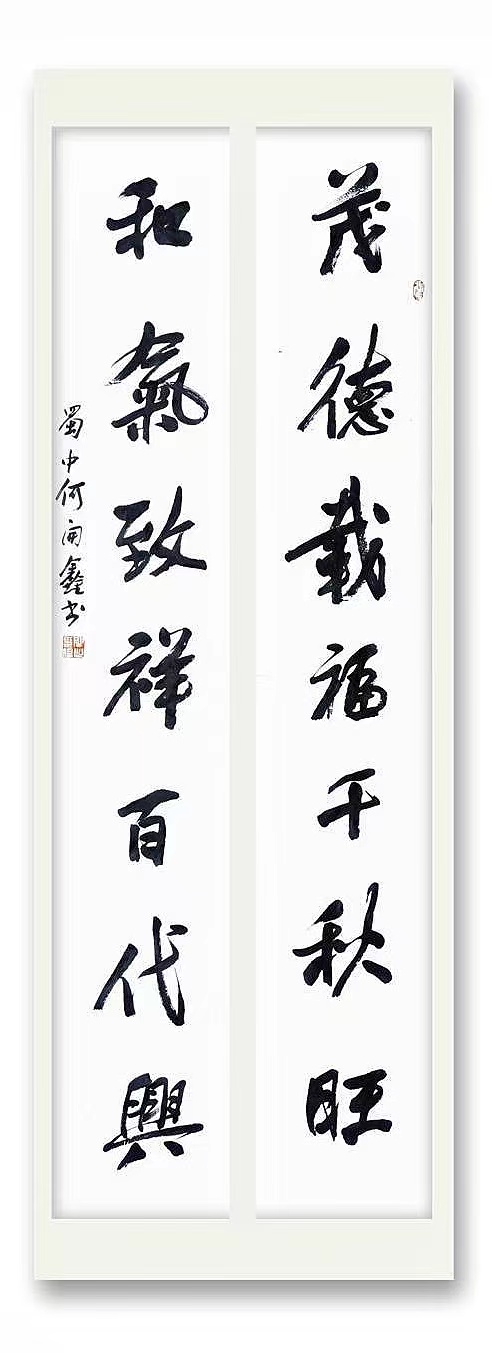 茂德載福千秋旺
和氣致祥百代興
蜀中何開鑫书